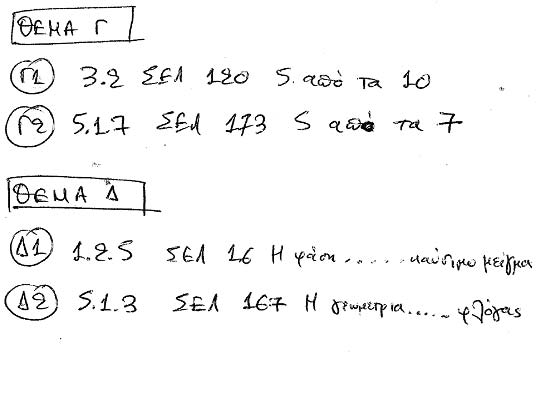 ΘΕΜΑ Γ
Γ1 3.2 ΣΕΛ 120 5 από τα 10
Γ2 5.1.7 ΣΕΛ 173 5 από τα 7
ΘΕΜΑ Δ
Δ1 1.2.5 ΣΕΛ 16 Η φάση ..... καύσιμο μείγμα
Δ2 5.1.3 ΣΕΛ 167 Η γεωμετρια ..... φλόγας